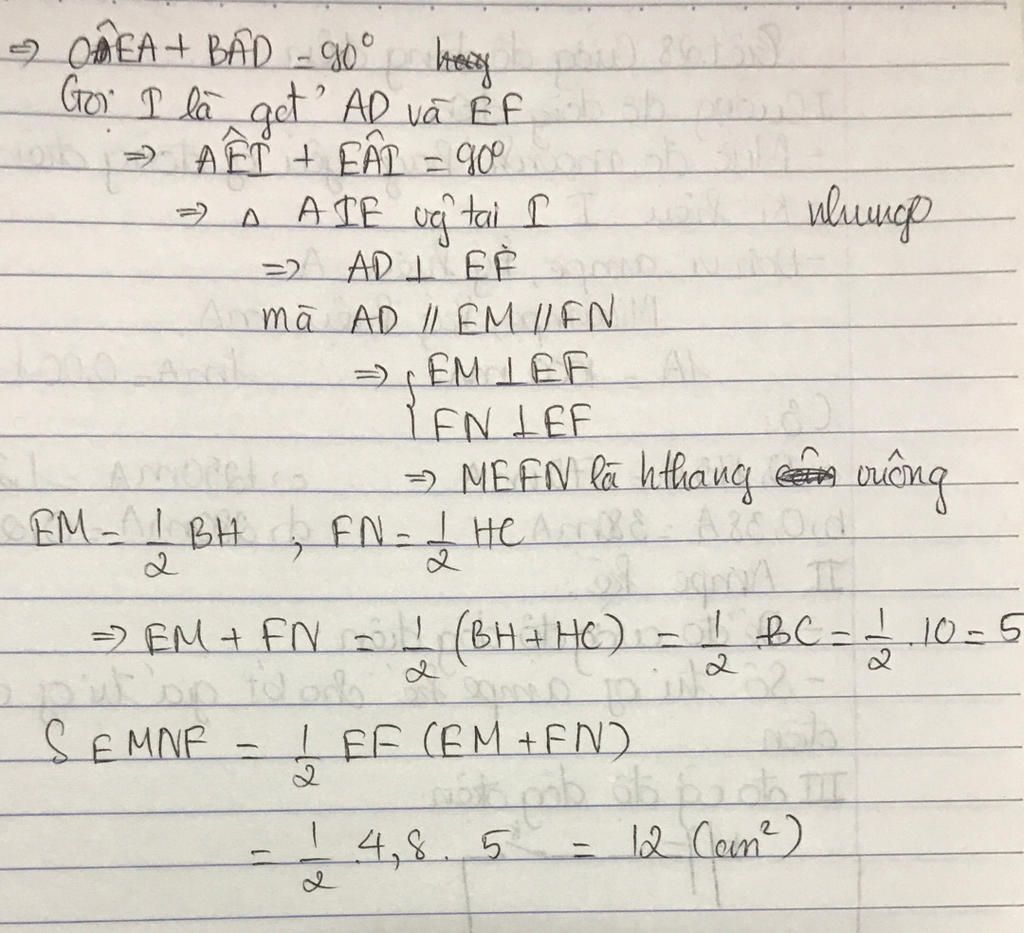 ⇒ OÊA + BÂD = 90°
Gọi I là gđ' AD và EF
⇒ AÊI + EÂI = 90°
⇒ Δ AIE vg tại I nhung
⇒ AD ⊥ EF
mà AD // EM // FN
⇒ { EM ⊥ EF
FN ⊥ EF
⇒ MEFN là hthang vuông
EM = 1/2 BH ; FN = 1/2 HC
⇒ EM + FN = 1/2 (BH + HC) = 1/2 BC = 1/2 . 10 = 5
S EMNF = 1/2 EF (EM + FN)
= 1/2 . 4,8 . 5 = 12 (cm²)